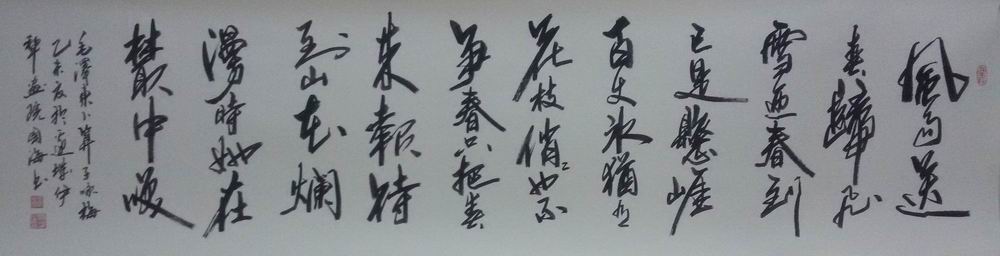 風雨送
春歸飛
雪迎春到
已是懸崖
百丈冰猶有
花枝俏々也不
爭春只把春
來報待
到山花爛
漫時她在
叢中咲
毛澤東卜算子咏梅
乙未夏於